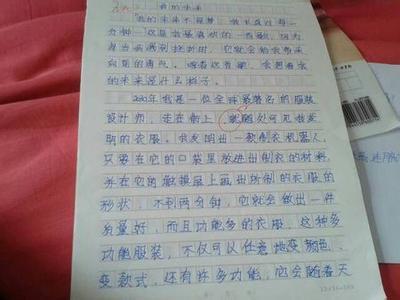 我的未来
"我的未来不是梦,我认真过每一
分钟"这是我最喜欢的一首歌,因为
每当我遇到挫折时,它就会给我带来
向前的勇气。唱着这首歌,我想着我
的未来是什么样子。
20年我是一位全球最著名的服装
设计师,走在街上随处可见我发
明的衣服。我发明出一款制衣机器人,
只要在它的口袋里放进出制衣的材料,
并在它的触摸屏上画出所制的衣服的
形状,不到两分钟,它就会做出一件
质量好,而且功能多的衣服。这种多
功能服装,不仅可以任意地变颜色、
变款式,还有许多功能,它会随着天